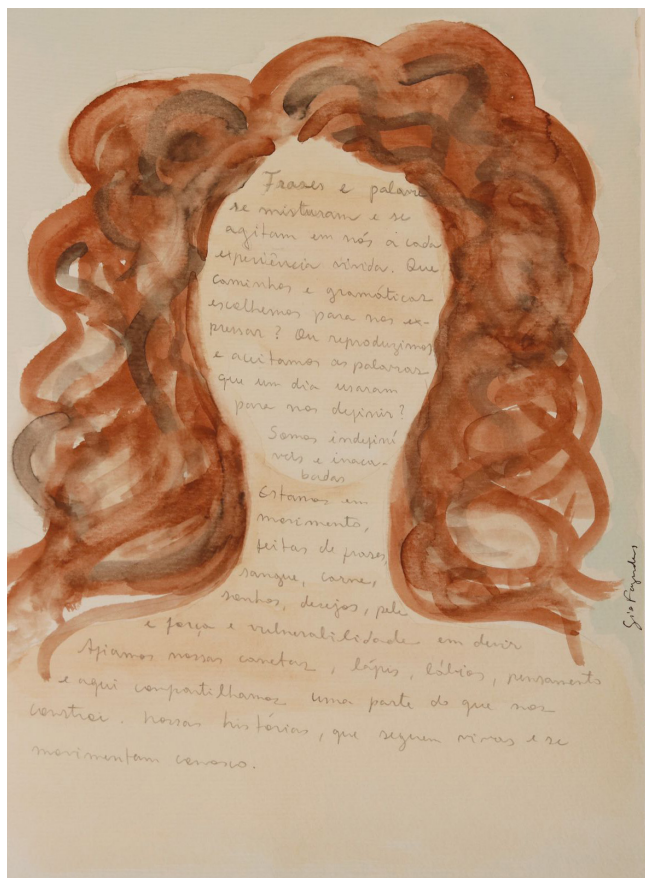 Frases e palavra
se misturam e se
agitam em nós à cada
experiência vivida. Que
caminhos e gramáticas
escolhemos para nos ex-
pressar? Ou reproduzimos
e aceitamos as palavras
que um dia usaram
para nos definir?
Somos indefiní
veis e inaca-
badas
Estamos em
movimento,
feitas de frases,
sangue, carne,
sonhos, desejos, pele
e força e vulnerabilidade em devir
Afiamos nossas canetas, lápis, lábios, pensamento
e aqui compartilhamos uma parte do que nos
constroi. Nossas histórias, que seguem vivas e se
movimentam conosco.
Gio Fagundes